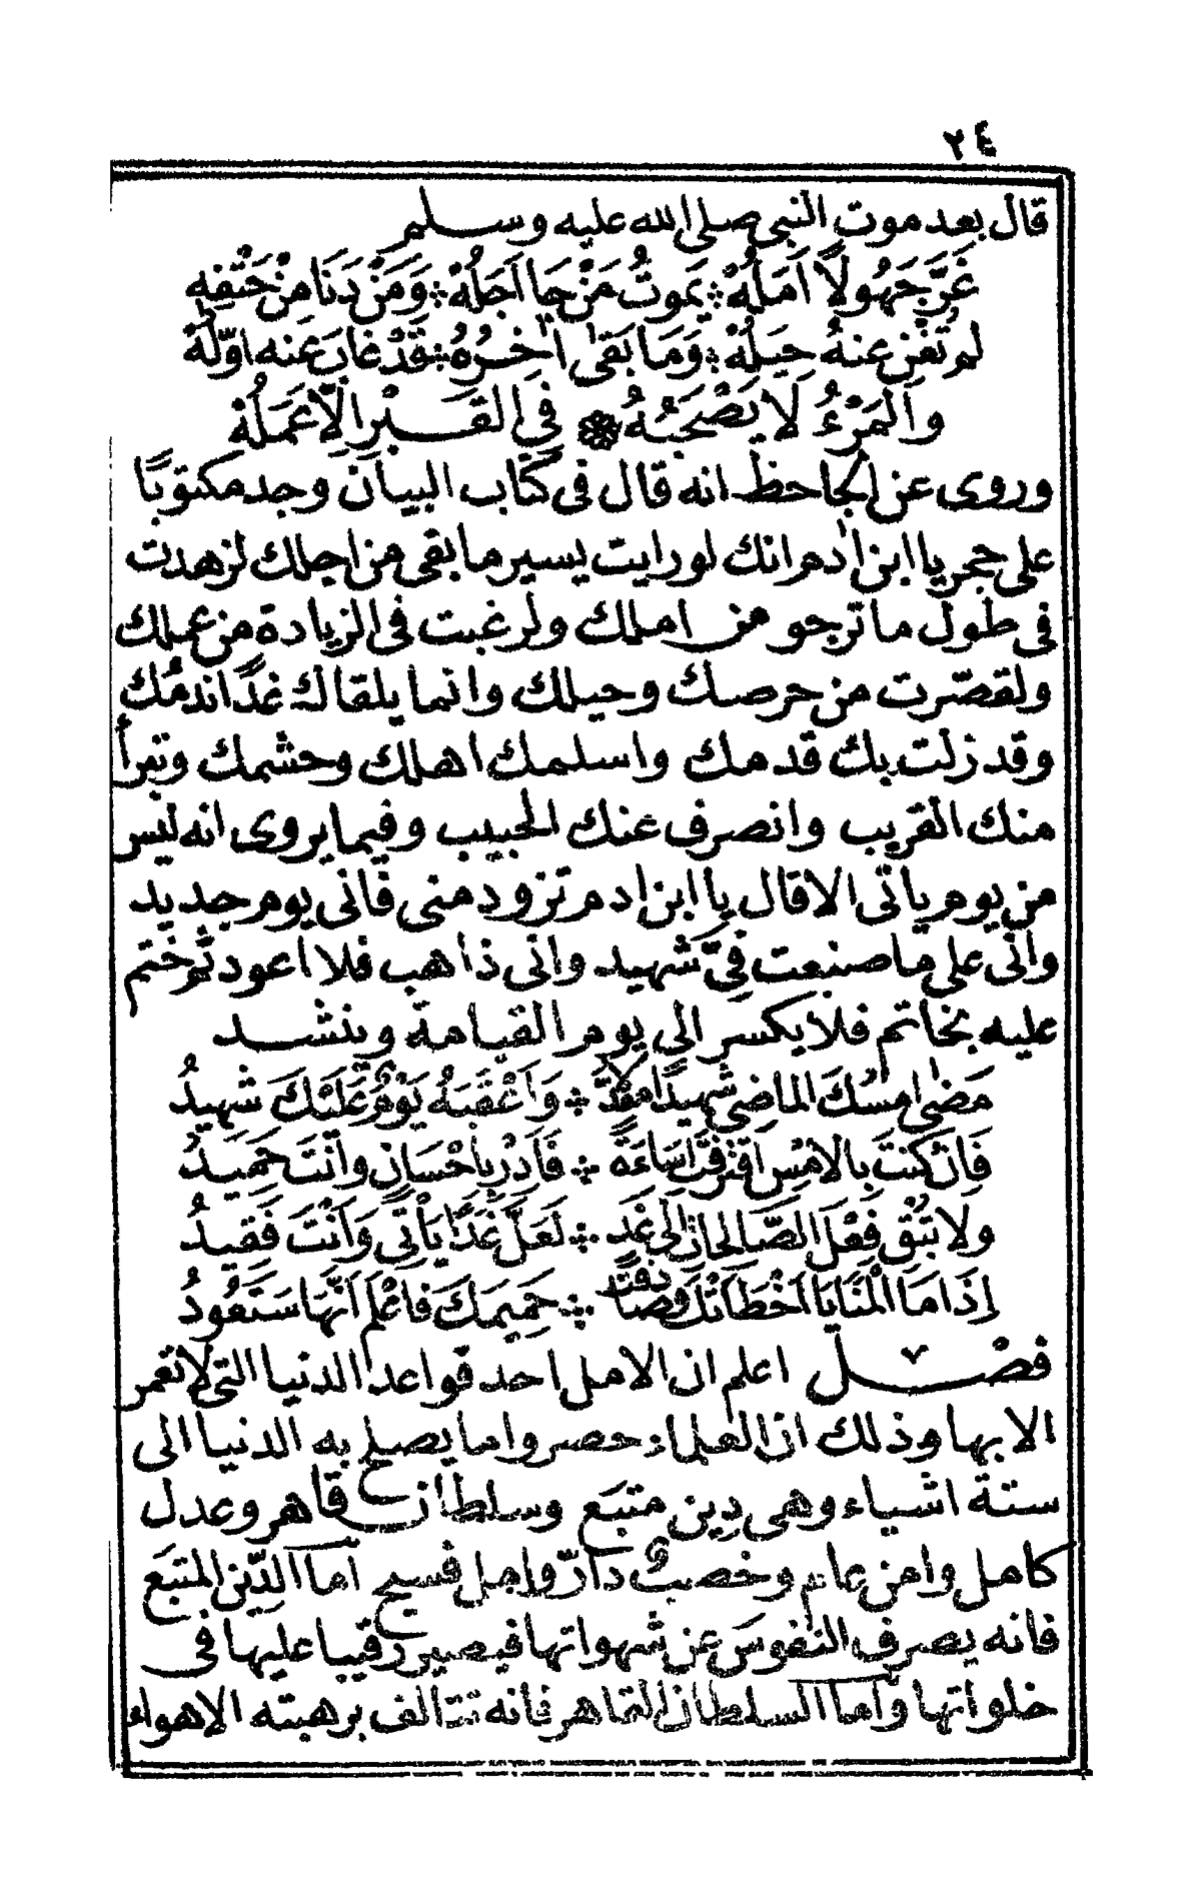 ٢٤
قال بعد موت النبى صلى الله عليه وسلم
غَرَّ جَهُولًا اَمَلُهْ ۞ يَمُوتُ مَنْ جَا اَجَلُهْ ۞ وَمَنْ دَنَا مِنْ حَتْفِهِ
لم تُغْنِ عنهُ حِيَلُهْ ۞ وَمَا بَقَى اٰخِرُهُ ۞ قَدْ غَابَ عنه اوّلُهْ
والمَرْءُ لَا يَصْحَبُهُ ۞ فِى القَبْرِ اِلَّا عَمَلُهْ
وروى عن الجاحظ انه قال فى كتاب البيان وجد مكتوبًا
على حجر يا ابن اٰدم انك لو رايت يسير ما بقى من اجلك لزهدت
فى طول ما ترجو من املك ولرغبت فى الزيادة من عملك
ولقصّرت من حرصك وحيلك وانما يلقاك غدًا ندمك
وقد زلت بك قدمك واسلمك اهلك وحشمك وتبرأ
منك القريب وانصرف عنك الحبيب وفيما يروى انه ليس
من يوم ياتى الا قال يا ابن ادم تزود منى فانى يوم جديد
وانى على ما صنعت فِىَّ شهيد وانى ذاهب فلا اعود ثم ختم
عليه بخاتم فلا يكسر الى يوم القيامة وينشد
مَضٰى اَمْسُكَ الماضِى شَهِيدًا مُعَدَّلًا ۞ وَاَعْقَبَهُ يَوْمٌ عَلَيْكَ شَهِيدُ
فَاِنْ كنتَ بِالامْسِ اقْتَرَفْتَ اِسَاءَةً ۞ فَبَادِرْ بِاِحْسَانٍ وانْتَ حَمِيدُ
ولا تُبْقِ فِعْلَ الصَّالحاتِ اِلَى غَدٍ ۞ لَعَلَّ غَدًا يَأْتِى وَاَنْتَ فَقِيدُ
اِذَا مَا الْمَنَايَا اَخْطَاَتْكَ وصَادَفَتْ ۞ حَمِيمَكَ فاعْلَم اَنَّهَا سَتَعُودُ
فصْل اعلم ان الامل احد قواعد الدنيا التى لا تعمر
الا بها وذلك ان العلماء حصروا ما يصلح به الدنيا الى
ستة اشياء وهى دِين متبَع وسلطان قاهر وعدل
كامل وامن عام وخصب دارّ وامل فسيح اما الدِّين المتبَع
فانه يصرف النفوسَ عن شهواتها فيصير رقيبا عليها فى
خلواتها واما السلطان القاهر فانه تتالف برهبته الاهواء